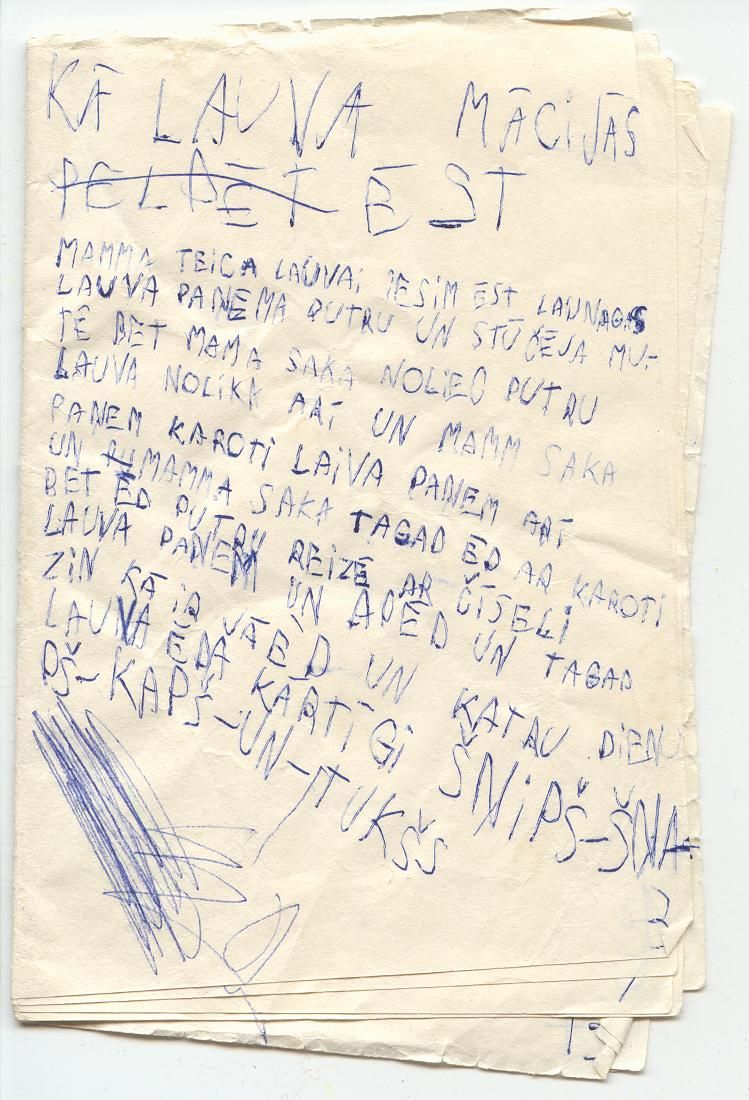 KĀ LAUVA MĀCIJĀS
PELDĒT ĒST
MAMMA TEICA LAUVAI IESIM ĒST LAUNAGAS
LAUVA PAŅEMA PUTRU UN STŪČĒJA MU-
TĒ BET MAMA SAKA NOLIEC PUTRU
LAUVA NOLIKA ARĪ UN MAMM SAKA
PAŅEM KAROTI LAIVA PAŅEM ARĪ
UN MAMMA SAKA TAGAD ĒD AR KAROTI
BET ĒD PUTRU REIZĒ AR ĶĪSELI
LAUVA PAŅEM UN APĒD UN TAGAD
ZIN KĀ IR JĀĒD UN KATRU DIENU
LAUVA ĒDA KARTĪGI ŠNIPŠ-ŠNA-
PŠ-KAPŠ-UN-TUKŠS